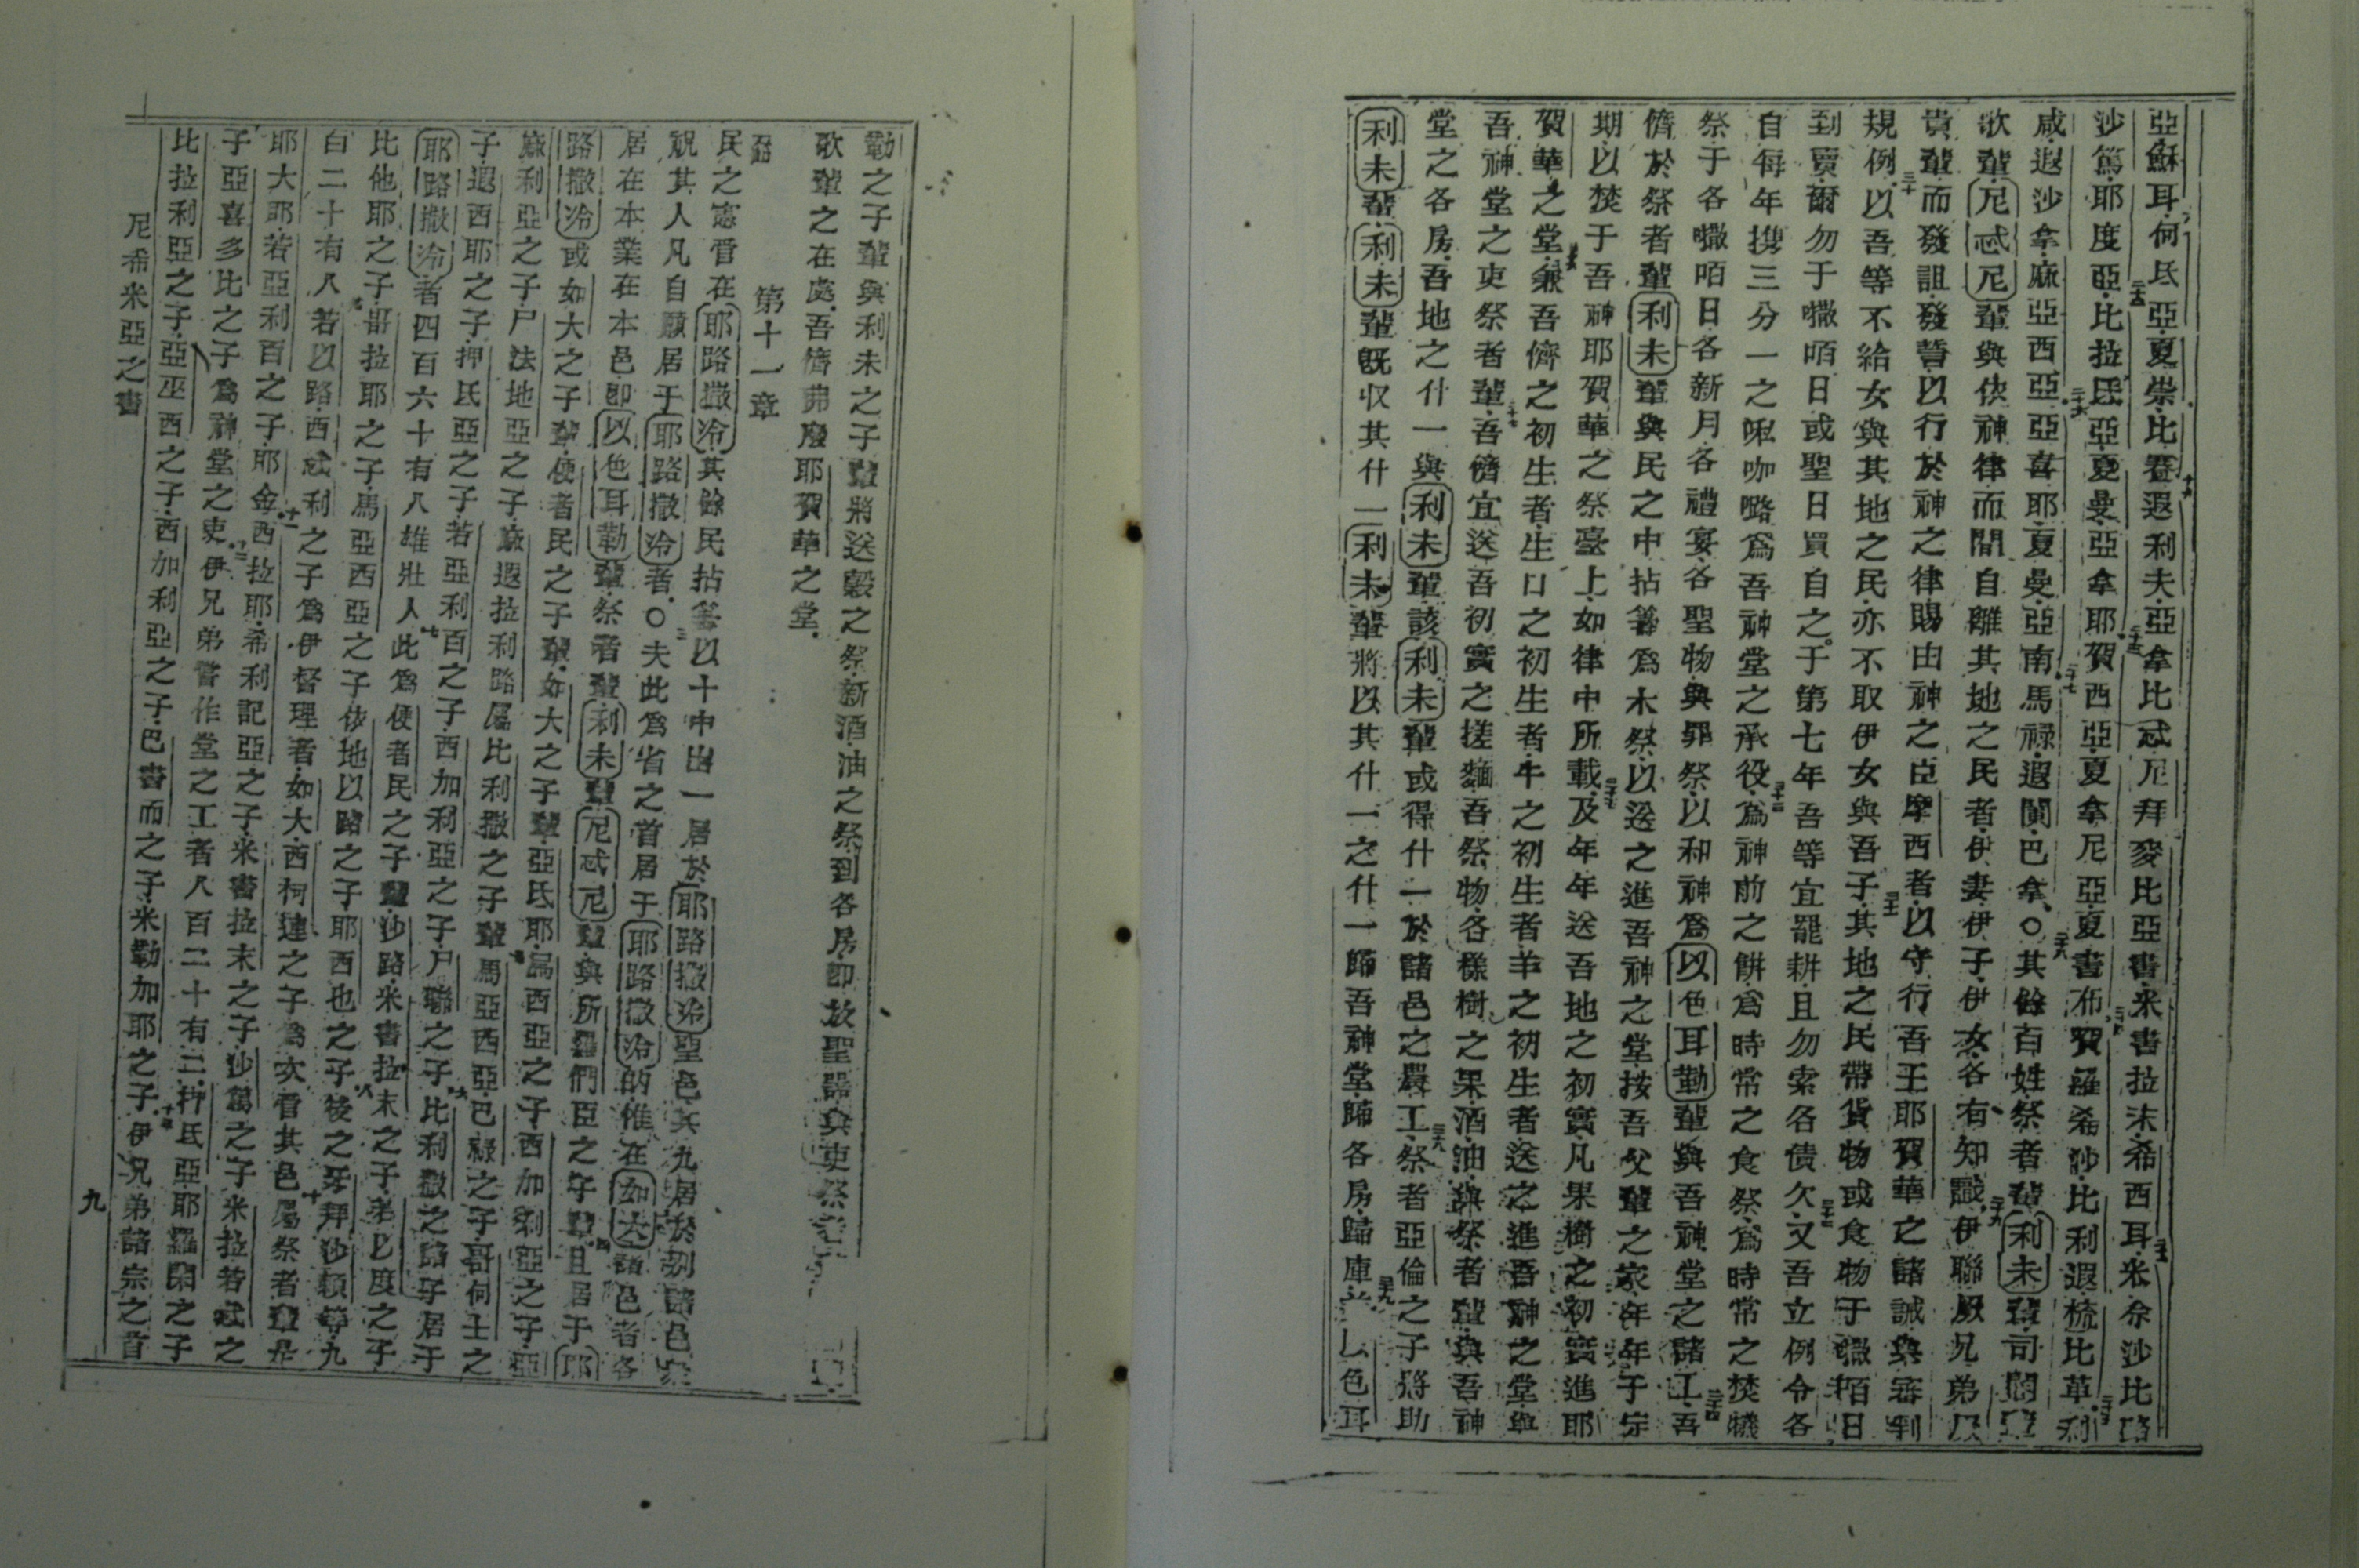 亞穌耳何氐亞夏崇比耷遐利夫亞拿比忒尼拜麥比亞書米書拉末希西耳米余沙比路
沙篤耶度亞比拉氐亞夏曼亞拿耶賀西亞夏拿尼亞夏書布賀羅希沙比利遐梳比革利
咸遐沙拿麻亞西亞亞喜耶夏曼亞南馬祿遐闌巴拿○其餘百姓祭者輩利未輩司閽輩
歌輩尼忒尼輩與依神律而間自離其地之民者伊妻伊子伊女各有知識伊聯厥兄弟及
貴輩而發詛發誓以行於神之律賜由神之臣摩西者以守行吾王耶賀華之諸誡與審判
規例以吾等不給女與其地之民亦不取伊女與吾子其地之民帶貨物或食物于𠹌咟日
到賣爾勿于𠹌咟日或聖日買自之于第七年吾等宜罷耕且勿索各債欠又吾立例令各
自每年攙三分一之𠸄咖咯為吾神堂之承役為神前之餅為時常之食祭為時常之焚犧
祭于各𠹌咟日各新月各禮宴各聖物與罪祭以和神為以色耳勒輩與吾神堂之諸工吾
儕於祭者輩利未輩與民之中拈籌為木祭以送之進吾神之堂按吾父輩之家年年于定
期以焚于吾神耶賀華之祭臺上如律中所載及年年送吾地之初實凡果樹之初實進耶
賀華之堂兼吾儕之初生者生口之初生者牛之初生者羊之初生者送之進吾神之堂與
吾神堂之吏祭者輩吾儕宜送吾初實之搓麵吾祭物各樣樹之果酒油與祭者輩與吾神
堂之各房吾地之什一與利未輩該利未輩或得什一於諸邑之農工祭者亞倫之子將助
利未輩利未輩既收其什一利未輩將以其什一之什一歸吾神堂歸各房歸庫 以色耳
勒之子輩與利未之子輩將送穀之祭新酒油之祭到各房即放聖器與吏祭
歌輩之在處吾儕弗廢耶賀華之堂
第十一章
民之憲督在耶路撒冷其餘民拈籌以十中出一居於耶路撒冷聖邑其九居於別諸邑
祝其人凡自願居于耶路撒冷者○夫此為省之首居于耶路撒冷的惟在如大諸邑者各
居在本業在本邑即以色耳勒輩祭者輩利未輩尼忒尼輩與所羅們臣之子輩且居于耶
路撒冷或如大之子輩便者民之子輩如大之子輩亞氐耶烏西亞之子西加利亞之子亞
麻利亞之子尸法地亞之子麻遐拉利路屬比利撒之子輩馬亞西亞巴祿之子哥何士之
子遐西耶之子押氐亞之子若亞利百之子西加利亞之子尸聯之子比利撒之諸子居于
耶路撒冷者四百六十有八雄壯人此為便者民之子輩沙路米書拉末之子弟以度之子
比他耶之子哥拉耶之子馬亞西亞之子依地以路之子耶西也之子後之牙拜沙額等九
百二十有八若以路西忒利之子為伊督理者如大西柯連之子為次督其邑屬祭者輩是
耶大耶若亞利百之子耶金西拉耶希利記亞之子米書拉末之子沙篤之子米拉若忒之
子亞喜多比之子為神堂之吏伊兄弟嘗作堂之工者八百二十有二押氐亞耶羅閑之子
比拉利亞之子亞巫西之子西加利亞之子巴書而之子米勒加耶之子伊兄弟諸宗之首
尼希米亞之書
九